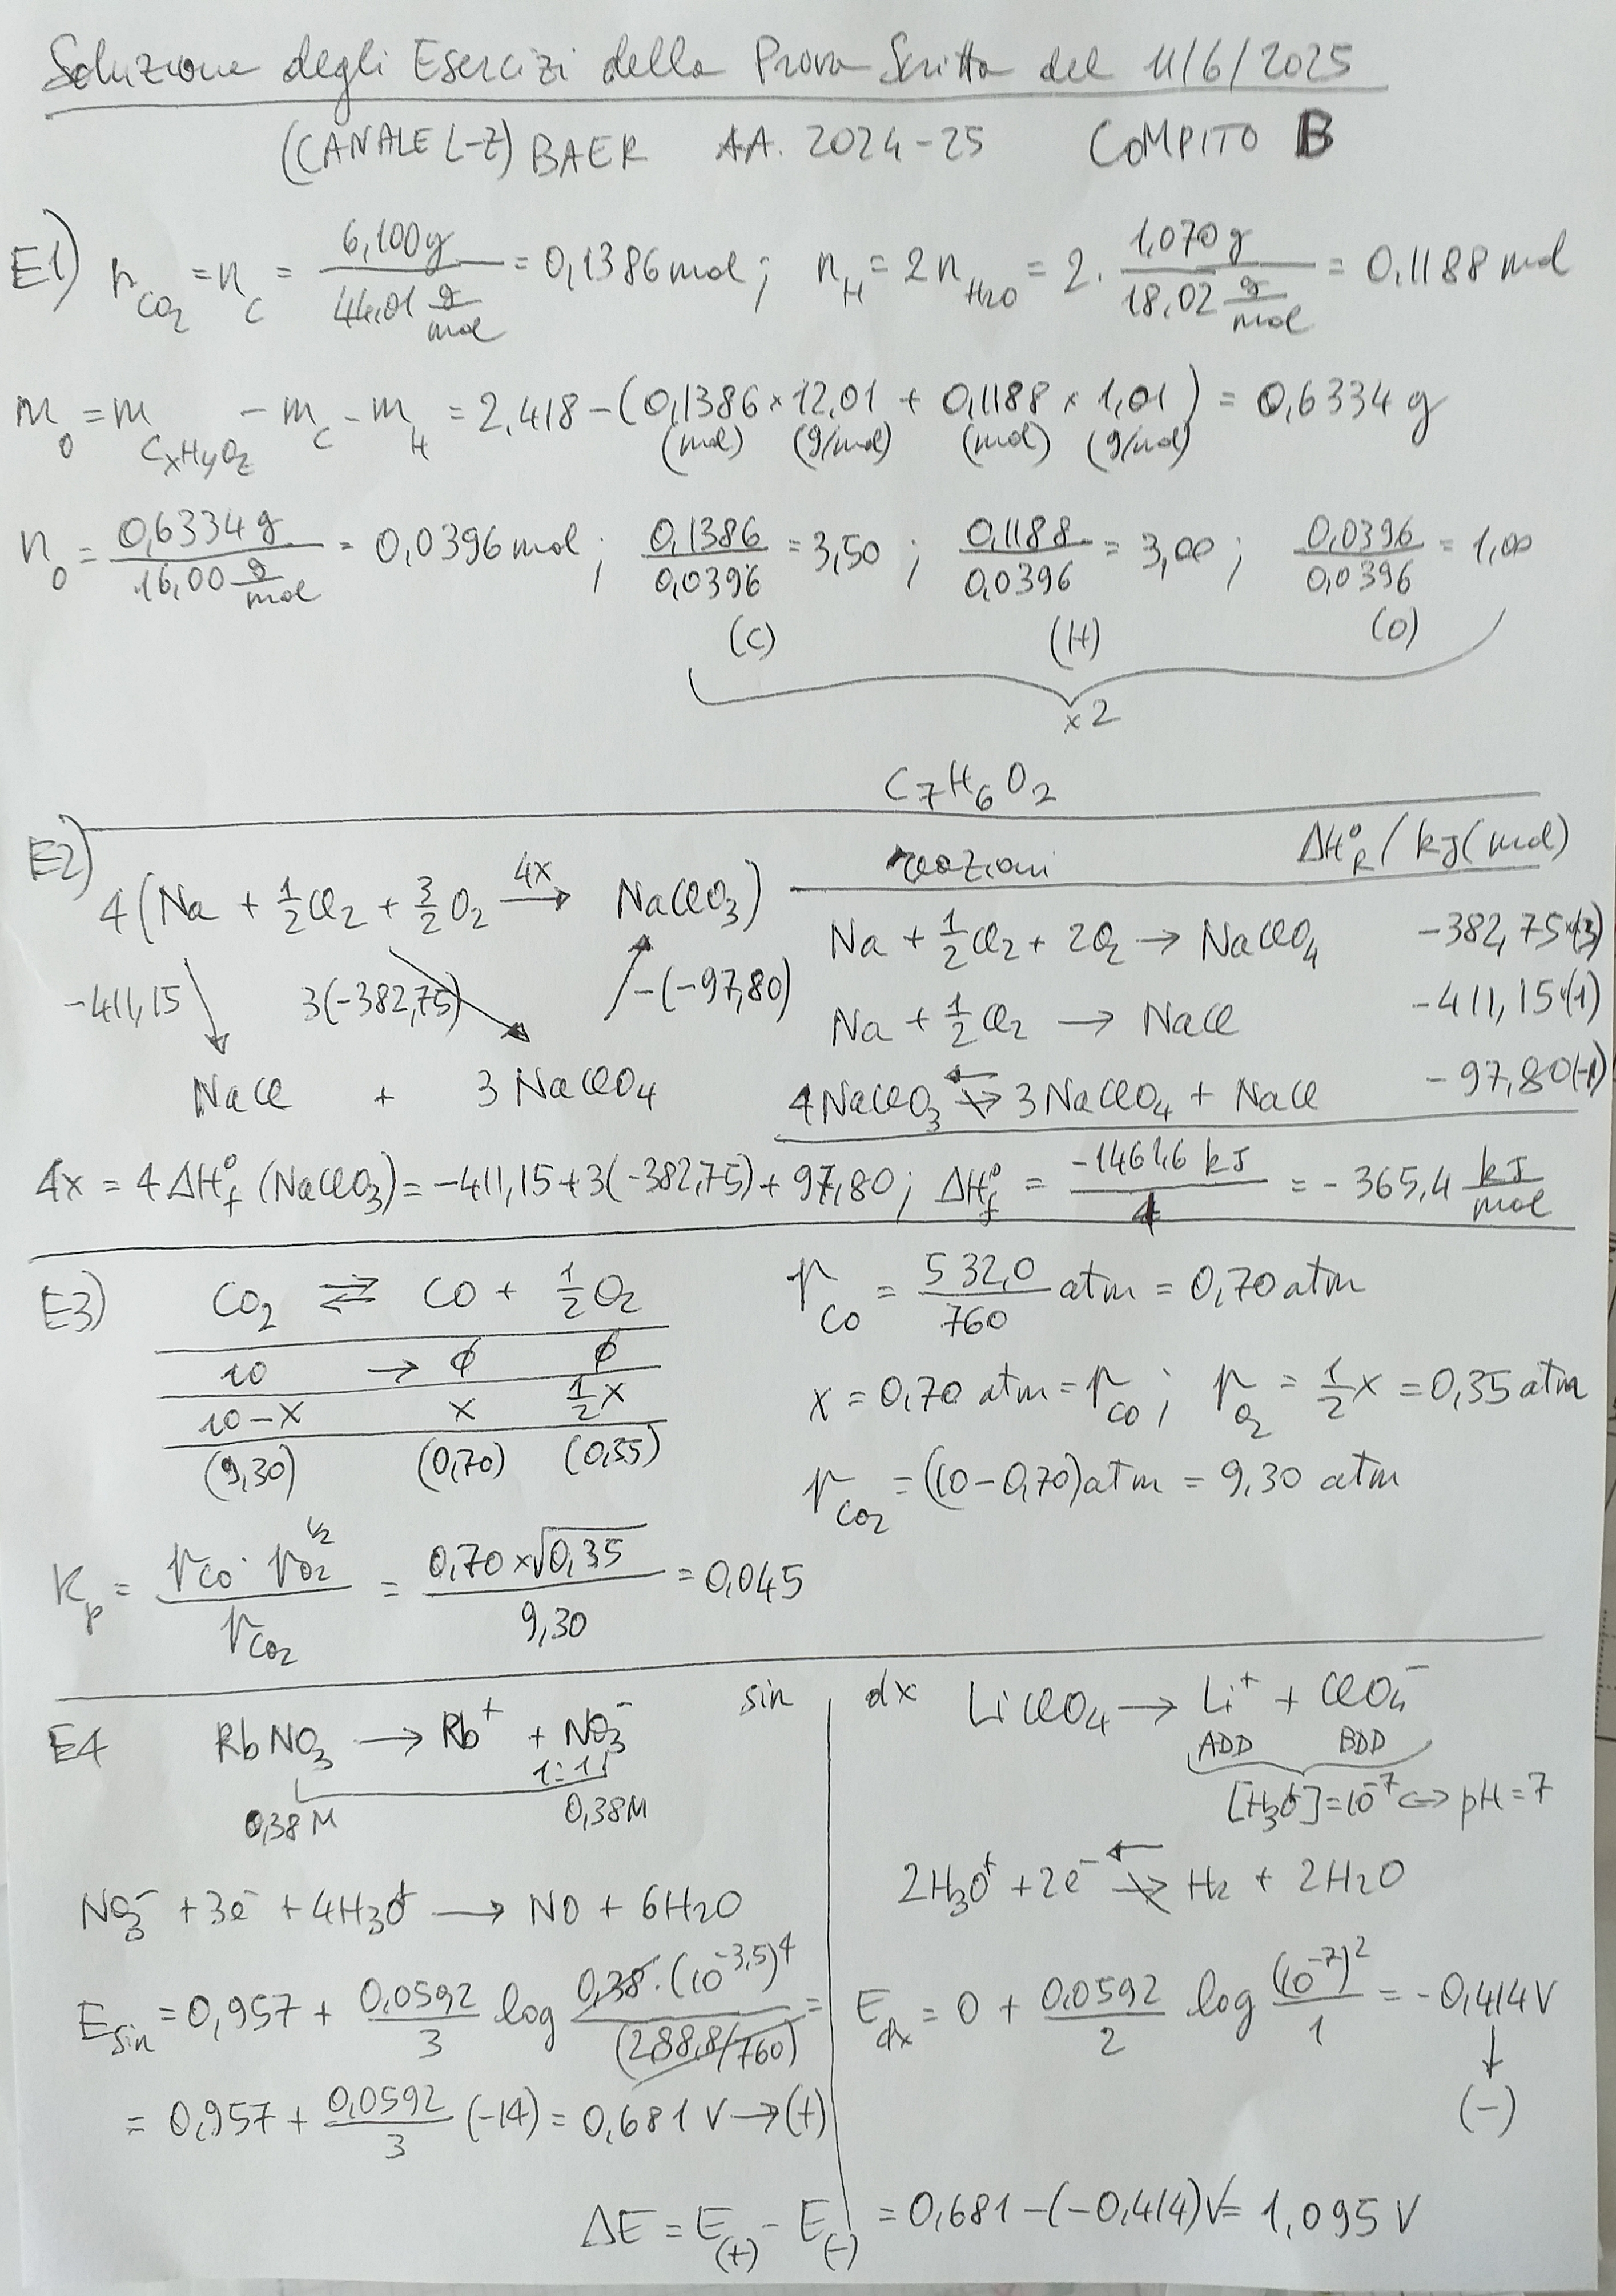 Soluzione degli Esercizi della Prova Scritta del 11/6/2025
(CANALE L-Z) BAER AA. 2024-25 COMPITO B
E1) n_CO2 = n_C = 6,100 g / 44,01 g/mol = 0,1386 mol ; n_H = 2 n_H2O = 2 · 1,070 g / 18,02 g/mol = 0,1188 mol
m_O = m_CxHyOz − m_C − m_H = 2,418 − (0,1386 × 12,01 + 0,1188 × 1,01) = 0,6334 g
(mol) (g/mol) (mol) (g/mol)
n_O = 0,6334 g / 16,00 g/mol = 0,0396 mol ; 0,1386 / 0,0396 = 3,50 ; 0,1188 / 0,0396 = 3,00 ; 0,0396 / 0,0396 = 1,00
(C) (H) (O)
x 2
C7H6O2
E2) 4(Na + 1/2 Cl2 + 3/2 O2 →4x NaClO3)
−411,15 3(−382,75) −(−97,80)
NaCl + 3 NaClO4
reazioni ΔH°R / kJ(mol)
Na + 1/2 Cl2 + 2O2 → NaClO4 −382,75·(3)
Na + 1/2 Cl2 → NaCl −411,15·(1)
4NaClO3 ⇄ 3NaClO4 + NaCl −97,80(−1)
4x = 4 ΔH°f (NaClO3) = −411,15 + 3(−382,75) + 97,80 ; ΔH°f = −1461,6 kJ / 4 = −365,4 kJ/mol
E3) CO2 ⇄ CO + 1/2 O2
10 → ∅ ∅
10−x x 1/2 x
(9,30) (0,70) (0,35)
p_CO = 532,0 / 760 atm = 0,70 atm
x = 0,70 atm = p_CO ; p_O2 = 1/2 x = 0,35 atm
p_CO2 = (10−0,70)atm = 9,30 atm
Kp = p_CO · p_O2^1/2 / p_CO2 = 0,70 × √0,35 / 9,30 = 0,045
E4 RbNO3 → Rb+ + NO3− sin
1:1
0,38 M 0,38 M
NO3− + 3e− + 4H3O+ → NO + 6H2O
E_sin = 0,957 + 0,0592/3 log 0,38·(10^−3,5)^4 / (288,8/760) =
= 0,957 + 0,0592/3 (−14) = 0,681 V → (+)
dx LiClO4 → Li+ + ClO4−
ADD BDD
[H3O+] = 10^−7 ⇔ pH = 7
2H3O+ + 2e− ⇄ H2 + 2H2O
E_dx = 0 + 0,0592/2 log (10^−7)^2 / 1 = −0,414 V
↓
(−)
ΔE = E(+) − E(−) = 0,681 − (−0,414) V = 1,095 V